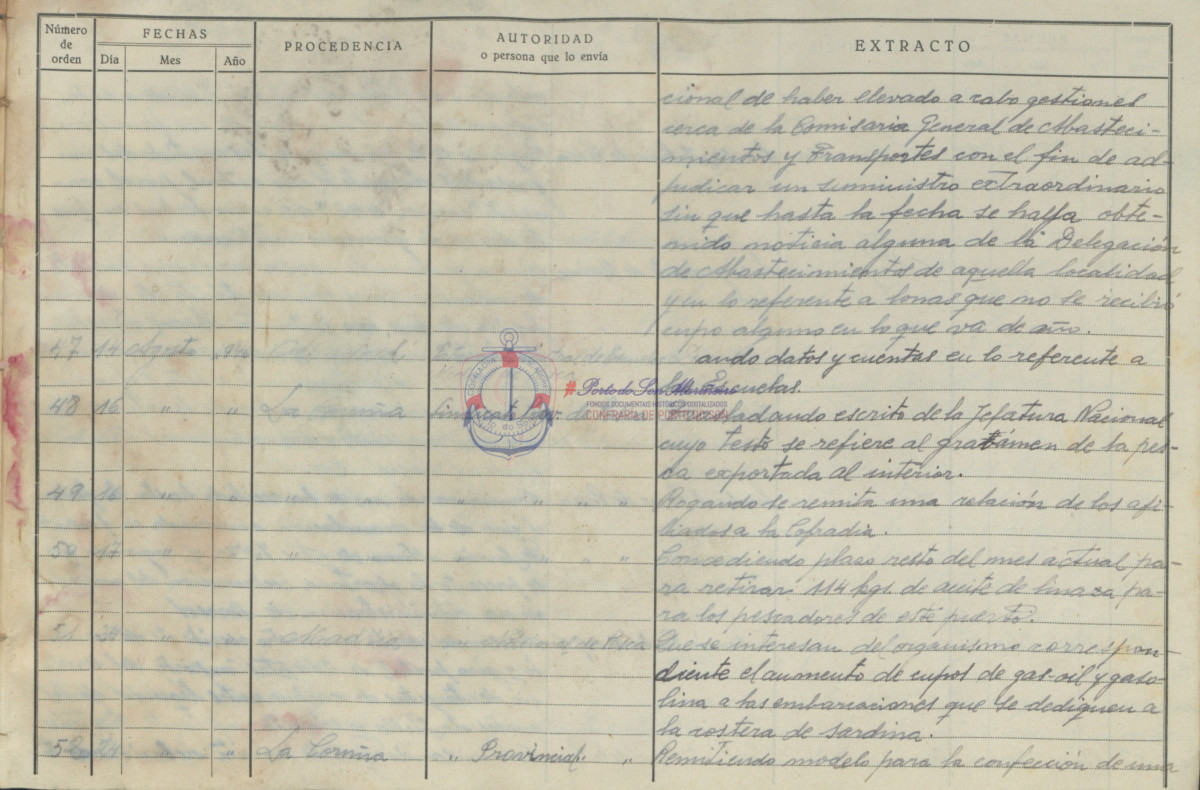 Número de orden
FECHAS
Día Mes Año
PROCEDENCIA
AUTORIDAD
o persona que lo envía
EXTRACTO
cional de haber llevado a cabo gestiones
cerca de la Comisaria General de Abasteci-
mientos y Transportes con el fin de ad-
judicar un suministro extraordinario
sin que hasta la fecha se halla obte-
nido noticia alguna de la Delegación
de Abastecimientos de aquella localidad
y en lo referente a lonas que no se recibió
cupo alguno en lo que va de año.
47 14 Agosto ando datos y cuentas en lo referente a
las Escuelas.
48 16 " " La Coruña Sindicato Prov. de Trasladando escrito de la Jefatura Nacional
cuyo testo se refiere al gravámen de la pes-
ca exportada al interior.
49 16 " " " " " " Rogando se remita una relación de los afi-
liados a la Cofradia.
50 17 " " " " " Concediendo plazo resto del mes actual pa-
ra retirar 114 kgs. de aceite de linaza pa-
ra los pescadores de este puerto.
51 " " Madrid " Nacional de Pesca Que se interesan del organismo correspon-
diente el aumento de cupos de gas-oil y gaso-
lina a las embarcaciones que se dediquen a
la costera de sardina.
52 " " La Coruña " Provincial. " Remitiendo modelo para la confección de una
#Porto do Son Mariñeiro
FONDOS DOCUMENTAIS HISTÓRICOS DIXITALIZADOS
CONFRARÍA DE PORTO DO SON